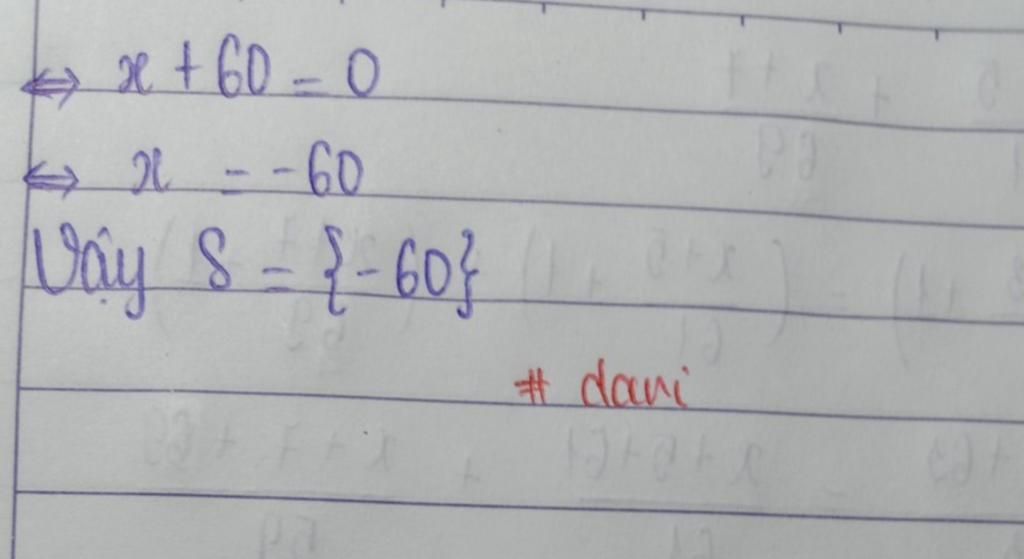 ⇔ x + 60 = 0
⇔ x = -60
Vậy S = {-60}
# dani